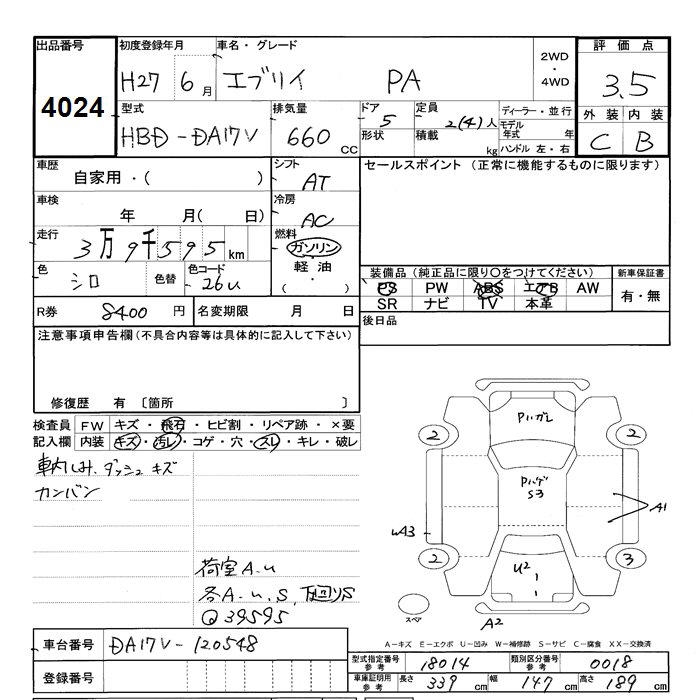 出品番号
4024
初度登録年月
H27 6月
車名・グレード
エブリイ PA
2WD
・
4WD
評価点
3.5
外装 内装
C B
型式
HBD-DA17V
排気量
660 CC
ドア
5
形状
定員
2(4)人
積載
kg
ディーラー・並行
モデル年式 年
ハンドル 左・右
車歴
自家用・( )
シフト
AT
セールスポイント (正常に機能するものに限ります)
車検
年 月(日)
冷房
AC
走行
3万9千595km
燃料
ガソリン
・
軽油
・
( )
色
シロ
色替
色コード
26U
装備品(純正品に限り○をつけてください)
PS PW ABS エアB AW
SR ナビ TV 本革
新車保証書
有・無
R券
8400 円
名変期限 月 日
後日品
注意事項申告欄(不具合内容等は具体的に記入して下さい)
修復歴 有 〔箇所 〕
検査員記入欄
FW キズ・飛石・ヒビ割・リペア跡・×要
内装 キズ・汚レ・コゲ・穴・スレ・キレ・破レ
車内しみ、ダッシュキズ
カンバン
荷室A.u
各A.u.S, 下回りS
Q39595
Pハガレ
2
2
Pハゲ
S3
A1
WA3
2
U2
3
スペア
A2
A-キズ E-エクボ U-凹み W-補修跡 S-サビ C-腐食 XX-交換済
車台番号
DA17V-120548
登録番号
型式指定番号参考
18014
類別区分番号参考
0018
車庫証明用参考
長さ 339 cm 幅 147 cm 高さ 189 cm